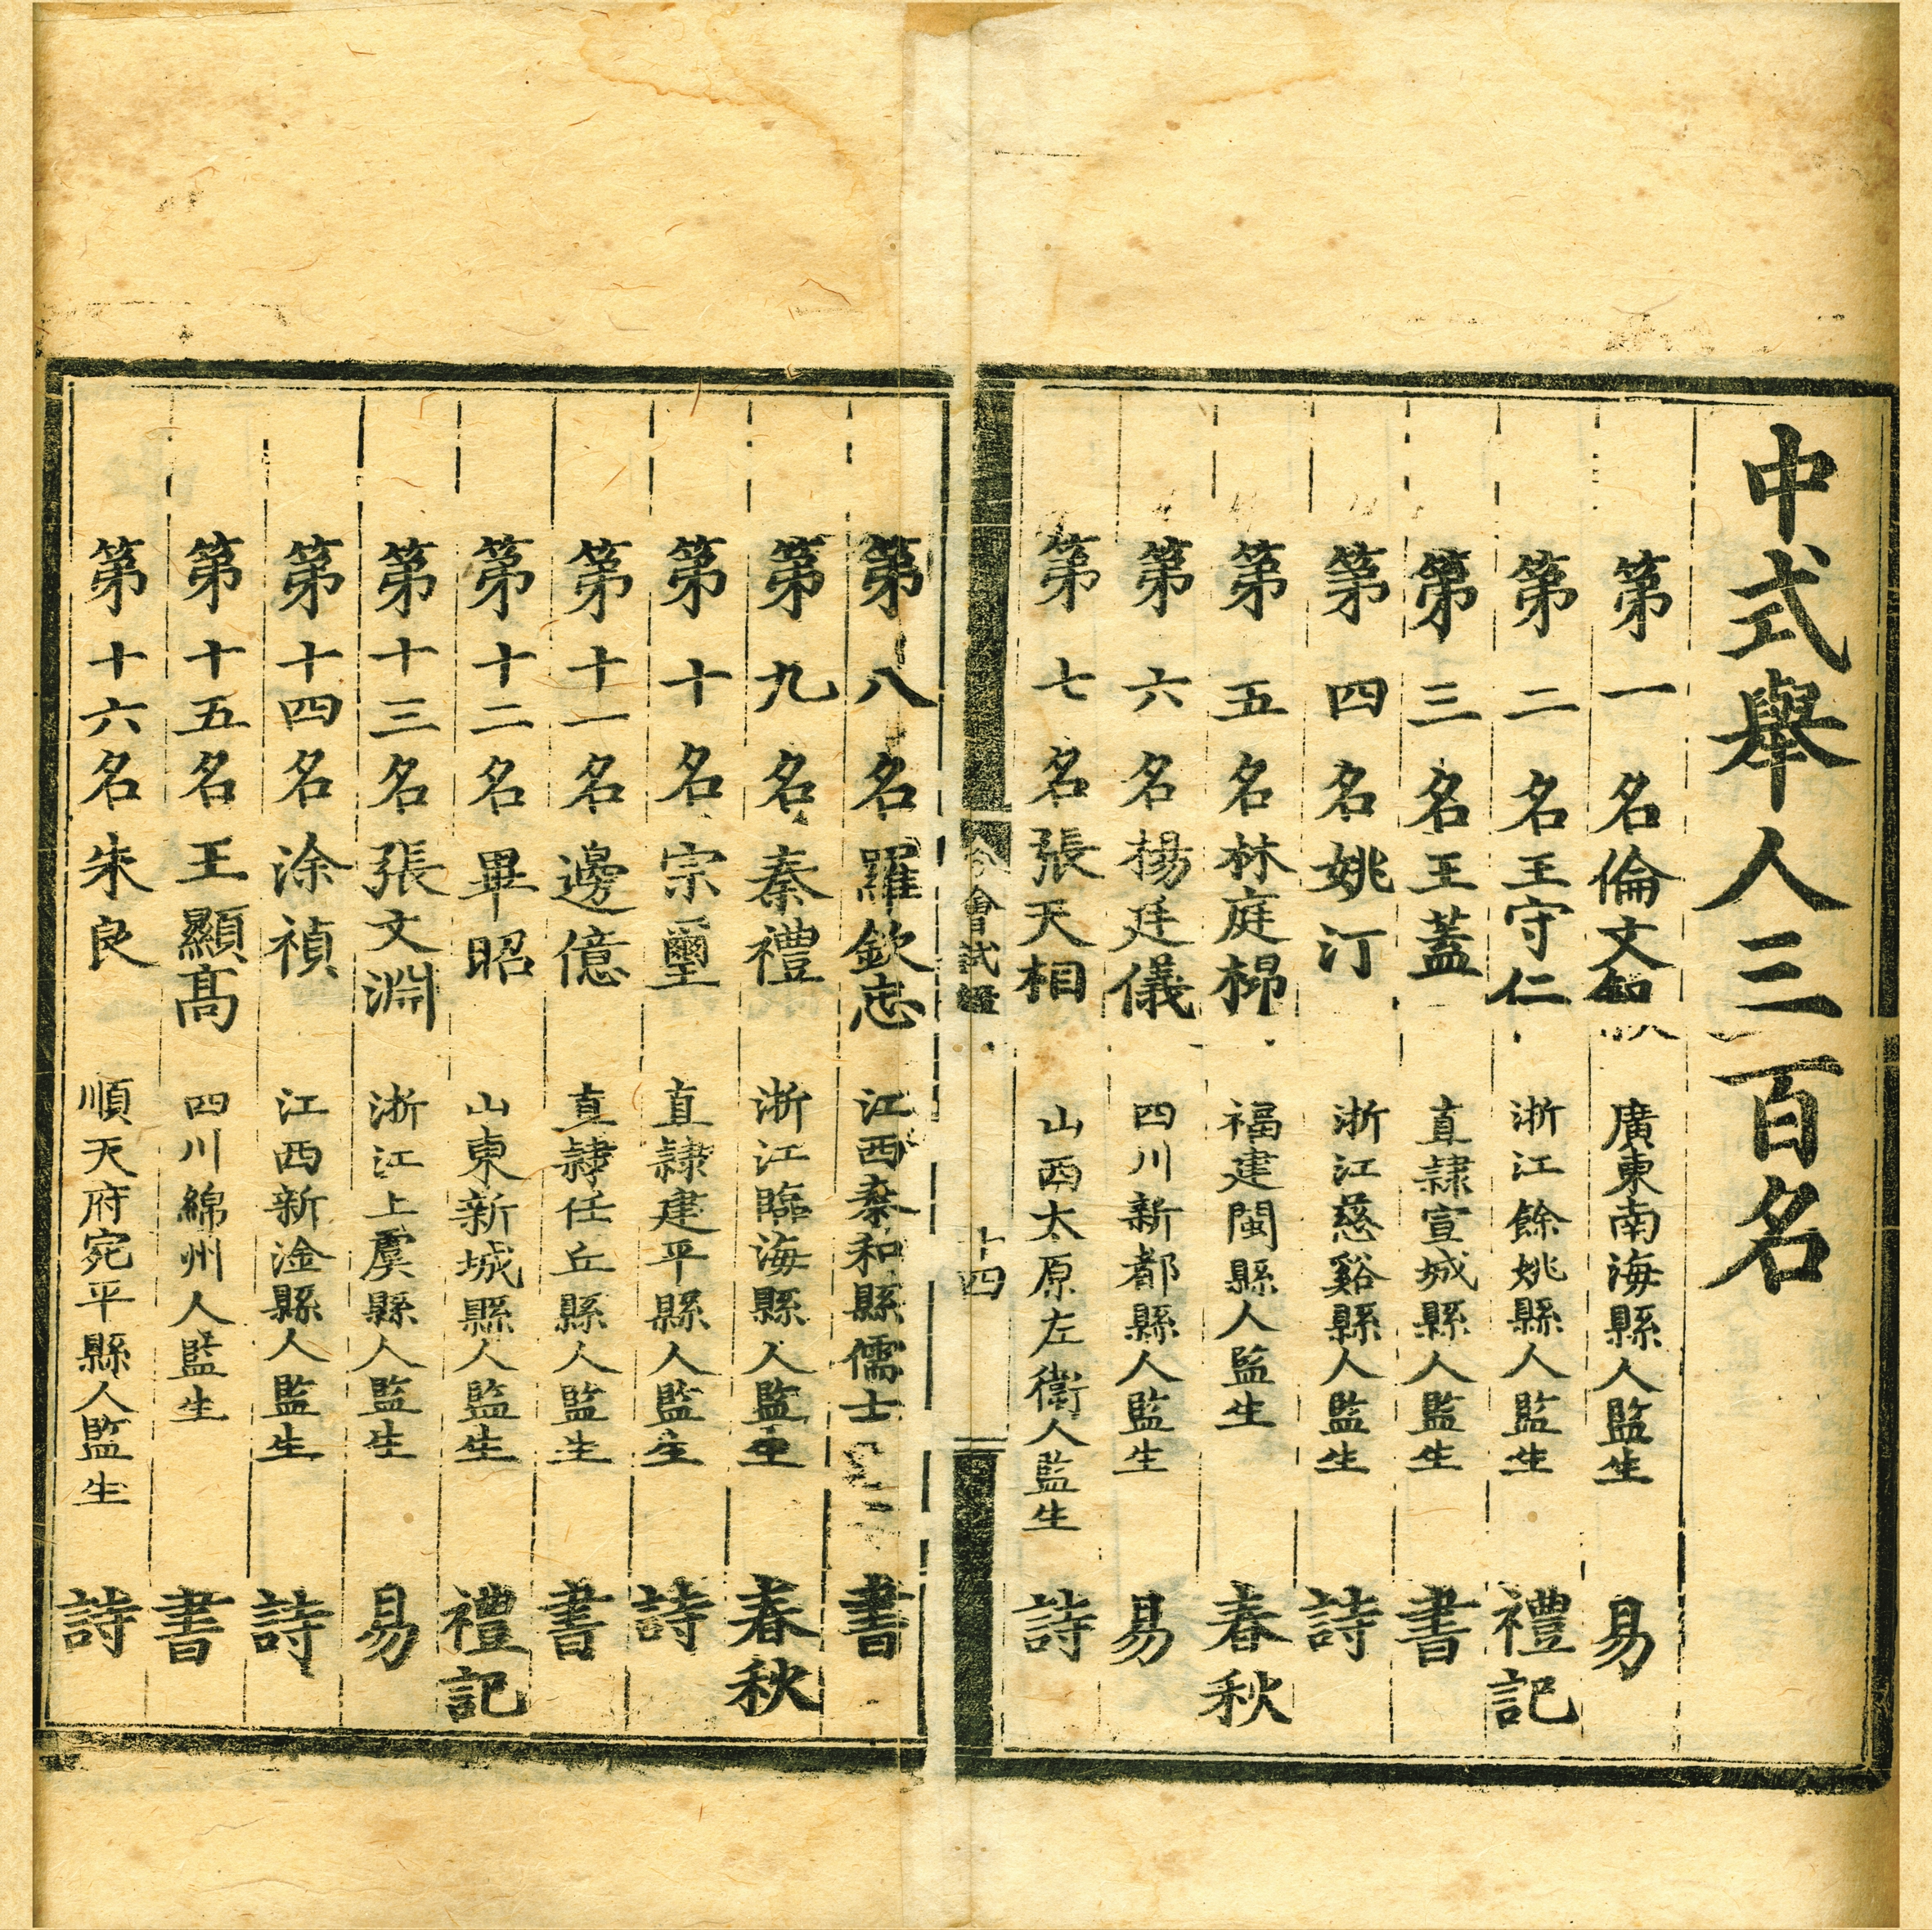 中式舉人三百名
第一名倫文叙 廣東南海縣人監生 易
第二名王守仁 浙江餘姚縣人監生 禮記
第三名王蓋 直隸宣城縣人監生 書
第四名姚汀 浙江慈谿縣人監生 詩
第五名林庭㭿 福建閩縣人監生 春秋
第六名楊廷儀 四川新都縣人監生 易
第七名張天相 山西太原左衛人監生 詩
會試錄 十四
第八名羅欽忠 江西泰和縣儒士 書
第九名秦禮 浙江臨海縣人監生 春秋
第十名宗璽 直隸建平縣人監生 詩
第十一名邊億 直隸任丘縣人監生 書
第十二名畢昭 山東新城縣人監生 禮記
第十三名張文淵 浙江上虞縣人監生 易
第十四名涂禎 江西新淦縣人監生 詩
第十五名王顯高 四川綿州人監生 書
第十六名朱良 順天府宛平縣人監生 詩